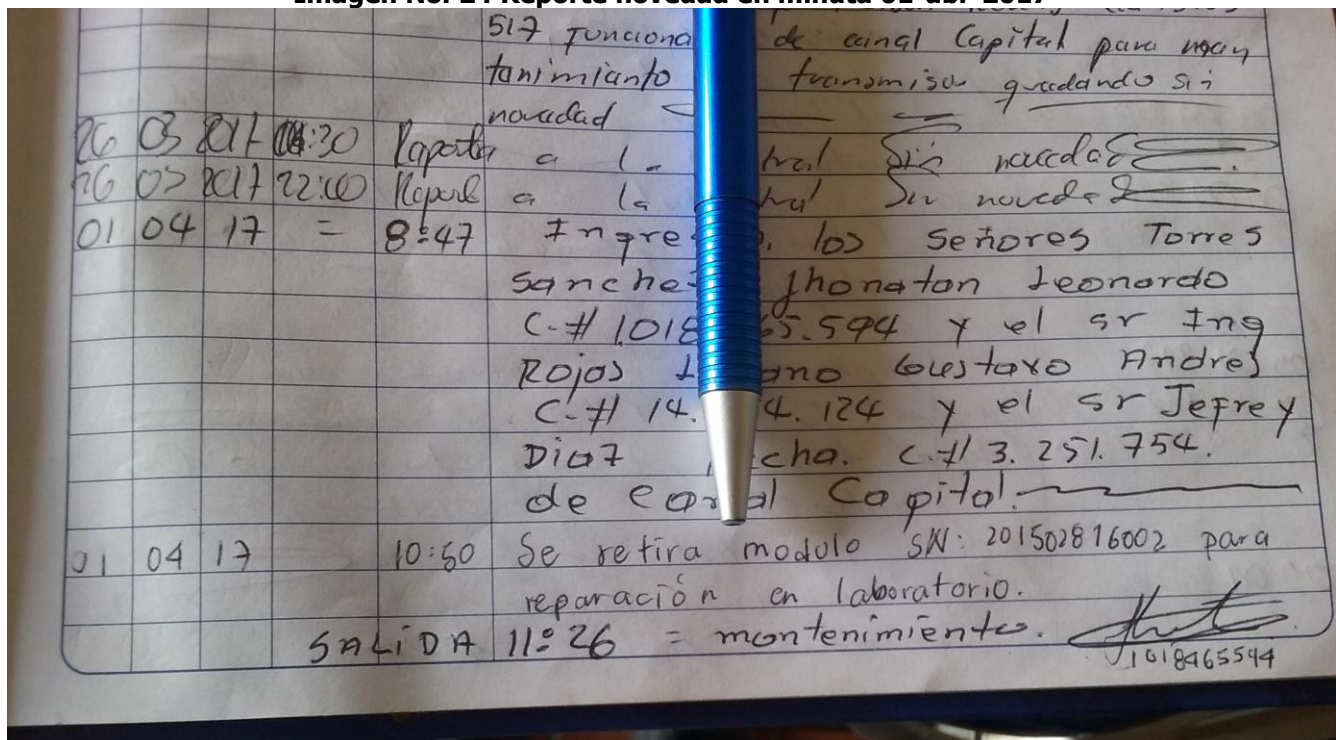 Imagen No. 24 Reporte novedad en minuta 01-abr-2017
517 funciona de canal Capital para man
tanimianto transmisor quedando sin
novedad
26 03 2017 :30 Reporta a la tral Sin novedad
26 03 2017 22:00 Report a la tral Sin novedad
01 04 17 = 8:47 Ingre los Señores Torres
Sanche Jhonatan Leonardo
C.# 1.018 65.594 y el sr Ing
Rojas L ano Gustavo Andres
C.# 14. 4.124 y el sr Jefrey
Diaz cha. C.# 3.251.754.
de canal Capital.
01 04 17 10:50 Se retira modulo SN: 201502816002 para
reparación en laboratorio.
SALiDA 11:26 = mantenimiento.
1018465594